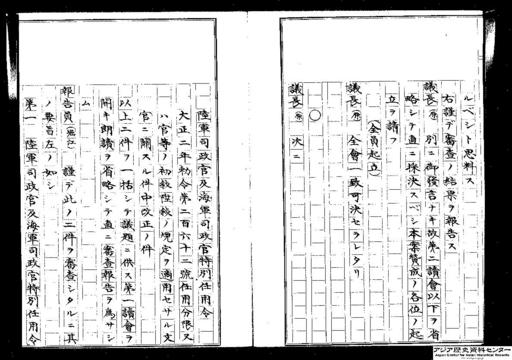 ルベシト思料ス
右謹デ審査ノ結果ヲ報告ス
議長(原) 別ニ御發言ナキ故第二讀會以下ヲ省
略シテ直ニ採決スベシ本案賛成ノ各位ノ起
立ヲ請フ
(全員起立)
議長(原) 全會一致可決セラレタリ
○
議長(原) 次ニ
陸軍司政官及海軍司政官特別任用令
大正二年勅令第二百六十二號任用分限又
ハ官等ノ初敍陞敍ノ規定ヲ適用セサル文
官ニ關スル件中改正ノ件
以上二件ヲ一括シテ議題ニ供ス第一讀會ヲ
開キ朗讀ヲ省略シテ直ニ審査報告ヲ爲サシ
ム
報告員 謹デ此ノ二件ヲ審査シタルニ其
ノ要旨左ノ如シ
第一 陸軍司政官及海軍司政官特別任用令
アジア歴史資料センター
Japan Center for Asian Historical Records